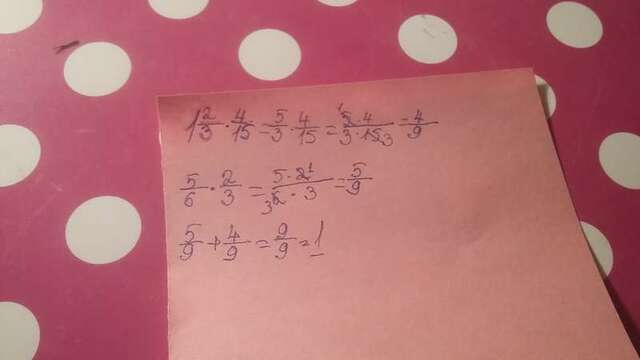 1 2/3 · 4/15 = 5/3 · 4/15 = 5·4/3·15 3 = 4/9
5/6 · 2/3 = 5·2 1/3 6·3 = 5/9
5/9 + 4/9 = 9/9 = 1